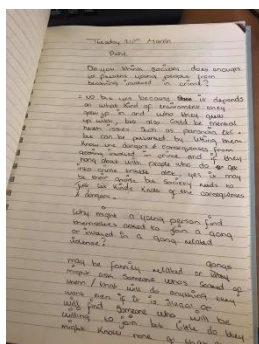 Tuesday 24th March
Do you think society does enough
to prevent young people from
becoming involved in crime?
- no but yes because it depends
on what kind of environment they
grow up in and who they grow
up with, but also could be mental
health issues such as paranoia etc.
but can be prevented by letting them
know the dangers & consequences from
getting involved in crime and if they
hang about with people who do get
into crime breaks etc, yes it may
be their choice but society needs to
let kids know of the consequences
& dangers.
Why might a young person find
themselves asked to join a gang
or involved in a gang related
violence?
gangs
may be family related or they
might ask someone who's scared of
them / that will do anything they
want even if it is illegal or
will find someone who will be
willing to join but little do they
might know none of that